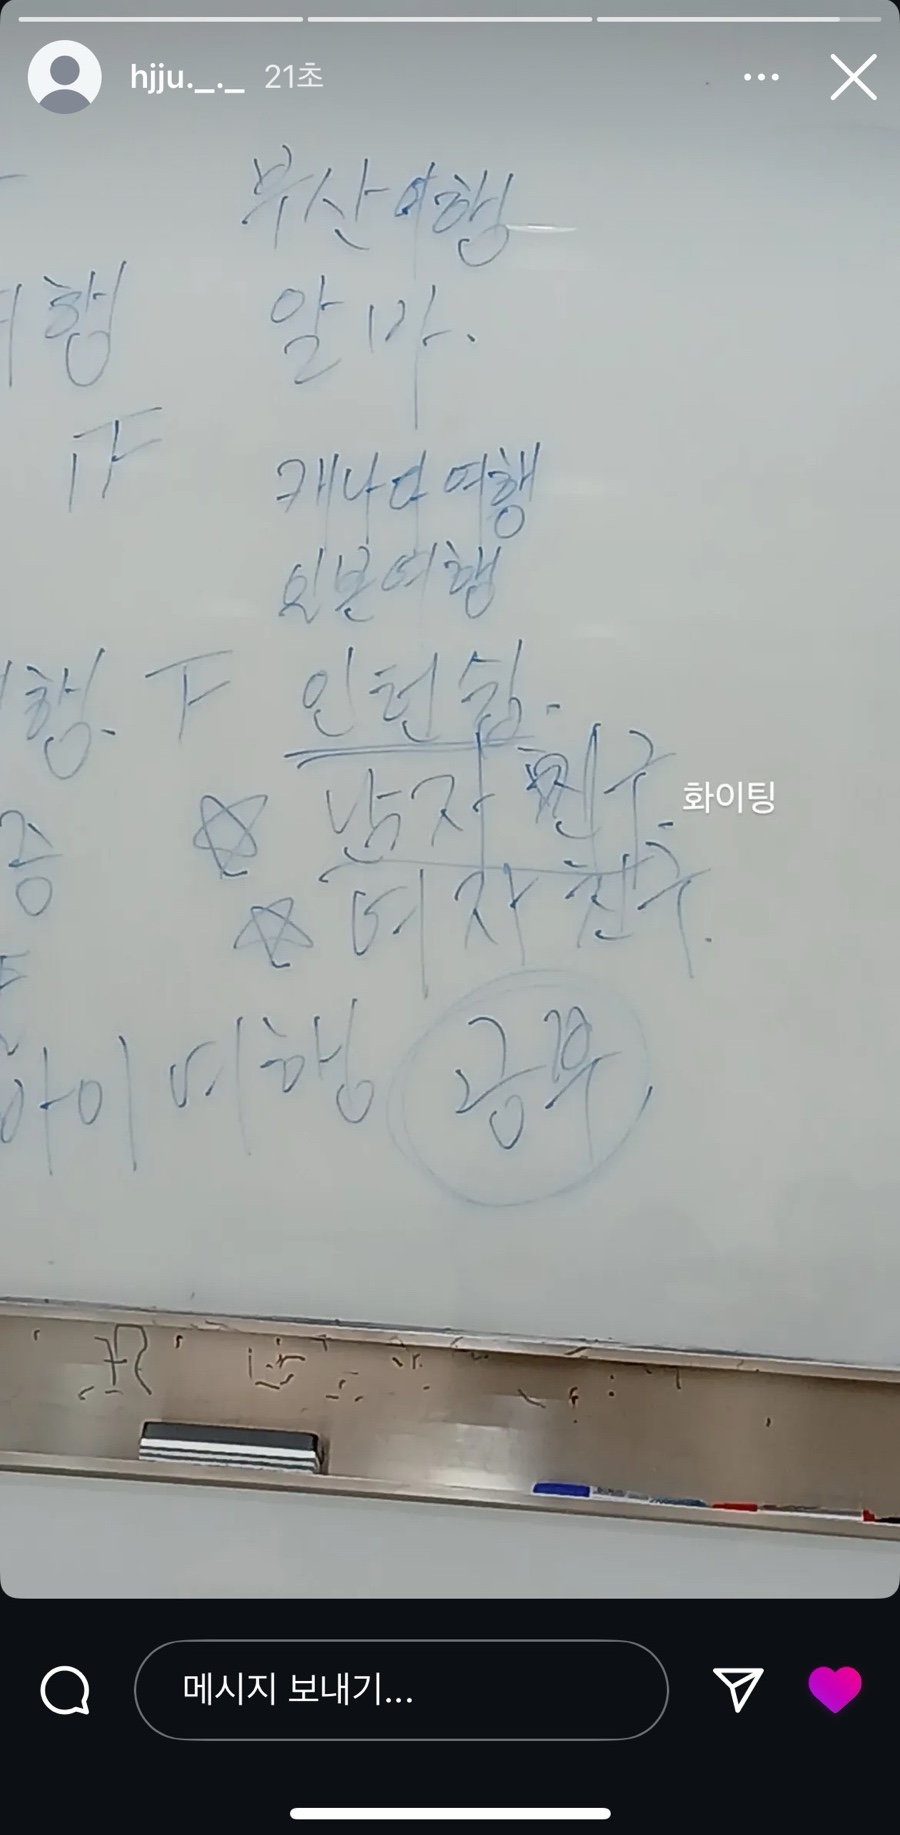 hjju._._ 21초
부산여행
여행 알바.
캐나다 여행
일본여행
행. 인턴십.
남자 친구.
화이팅
여자 친구.
여행 공부
메시지 보내기...